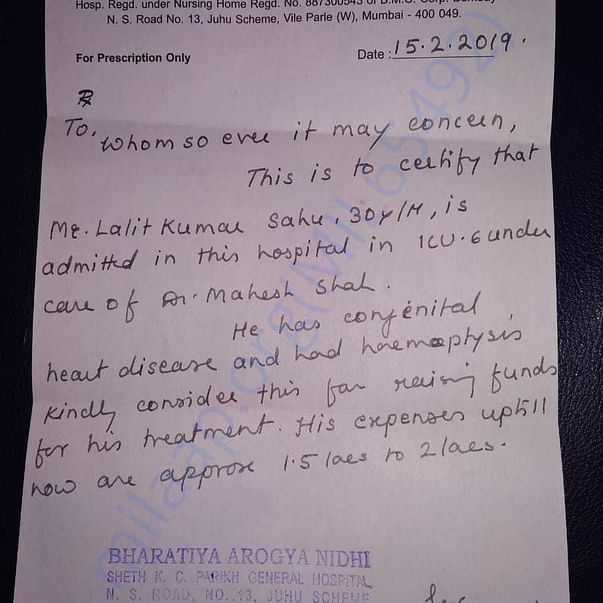 Hosp. Regd. under Nursing Home Regd. No. 887300543 of B.M.C. Corp.
N. S. Road No. 13, Juhu Scheme, Vile Parle (W), Mumbai - 400 049.
For Prescription Only
Date : 15.2.2019.
℞
To, whom so ever it may concern,
This is to certify that
Mr. Lalit Kumar Sahu, 30y/M, is
admitted in this hospital in ICU.6 under
care of Dr. Mahesh Shah.
He has congenital
heart disease and had haemoptysis
Kindly consider this for raising funds
for his treatment. His expenses uptill
now are approx 1.5 lacs to 2 lacs.
milaap.org(MIL65492)
BHARATIYA AROGYA NIDHI
SHETH K. C. PARIKH GENERAL HOSPITAL,
N. S. ROAD, NO. 13, JUHU SCHEME